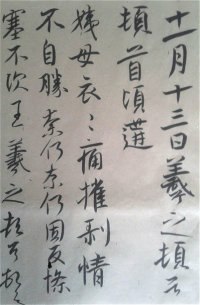 十一月十三日羲之頓首
頓首頃遘
姨母哀〻痛摧剥情
不自勝奈何奈何因反慘
塞不次王羲之頓首頓